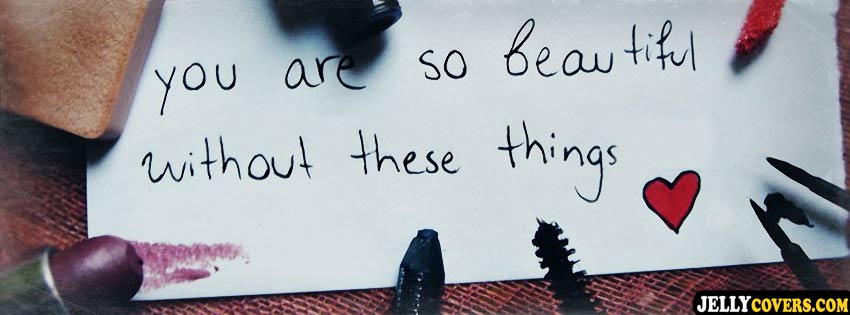 you are so beautiful
without these things
JELLYCOVERS.COM